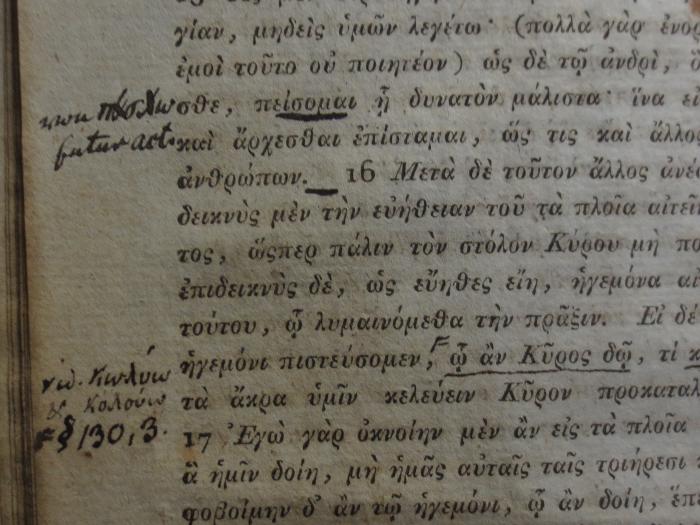 γίαν, μηδεὶς ὑμῶν λεγέτω· (πολλὰ γὰρ ἐνορ
ἐμοὶ τοῦτο οὐ ποιητέον) ὡς δὲ τῷ ἀνδρὶ, ὃ
σθε, πείσομαι ᾗ δυνατὸν μάλιστα· ἵνα εἰ
futur act.
καὶ ἄρχεσθαι ἐπίσταμαι, ὥς τις καὶ ἄλλος
ἀνθρώπων. 16 Μετὰ δὲ τοῦτον ἄλλος ἀνέσ
δεικνὺς μὲν τὴν εὐήθειαν τοῦ τὰ πλοῖα αἰτεῖν
τος, ὥςπερ πάλιν τὸν στόλον Κύρου μὴ πο
ἐπιδεικνὺς δὲ, ὡς εὔηθες εἴη, ἡγεμόνα αἰ
τούτου, ᾧ λυμαινόμεθα τὴν πρᾶξιν. Εἰ δέ
ἡγεμόνι πιστεύσομεν, ᾧ ἂν Κῦρος δῷ, τί κ
vid. κωλύω
& κολούω
§ 130, 3.
τὰ ἄκρα ὑμῖν κελεύειν Κῦρον προκαταλ
17 Ἐγὼ γὰρ ὀκνοίην μὲν ἂν εἰς τὰ πλοῖα
ἃ ἡμῖν δοίη, μὴ ἡμᾶς αὐταῖς ταῖς τριήρεσι
φοβοίμην δ' ἂν τῷ ἡγεμόνι, ᾧ ἂν δοίη, ἕπ